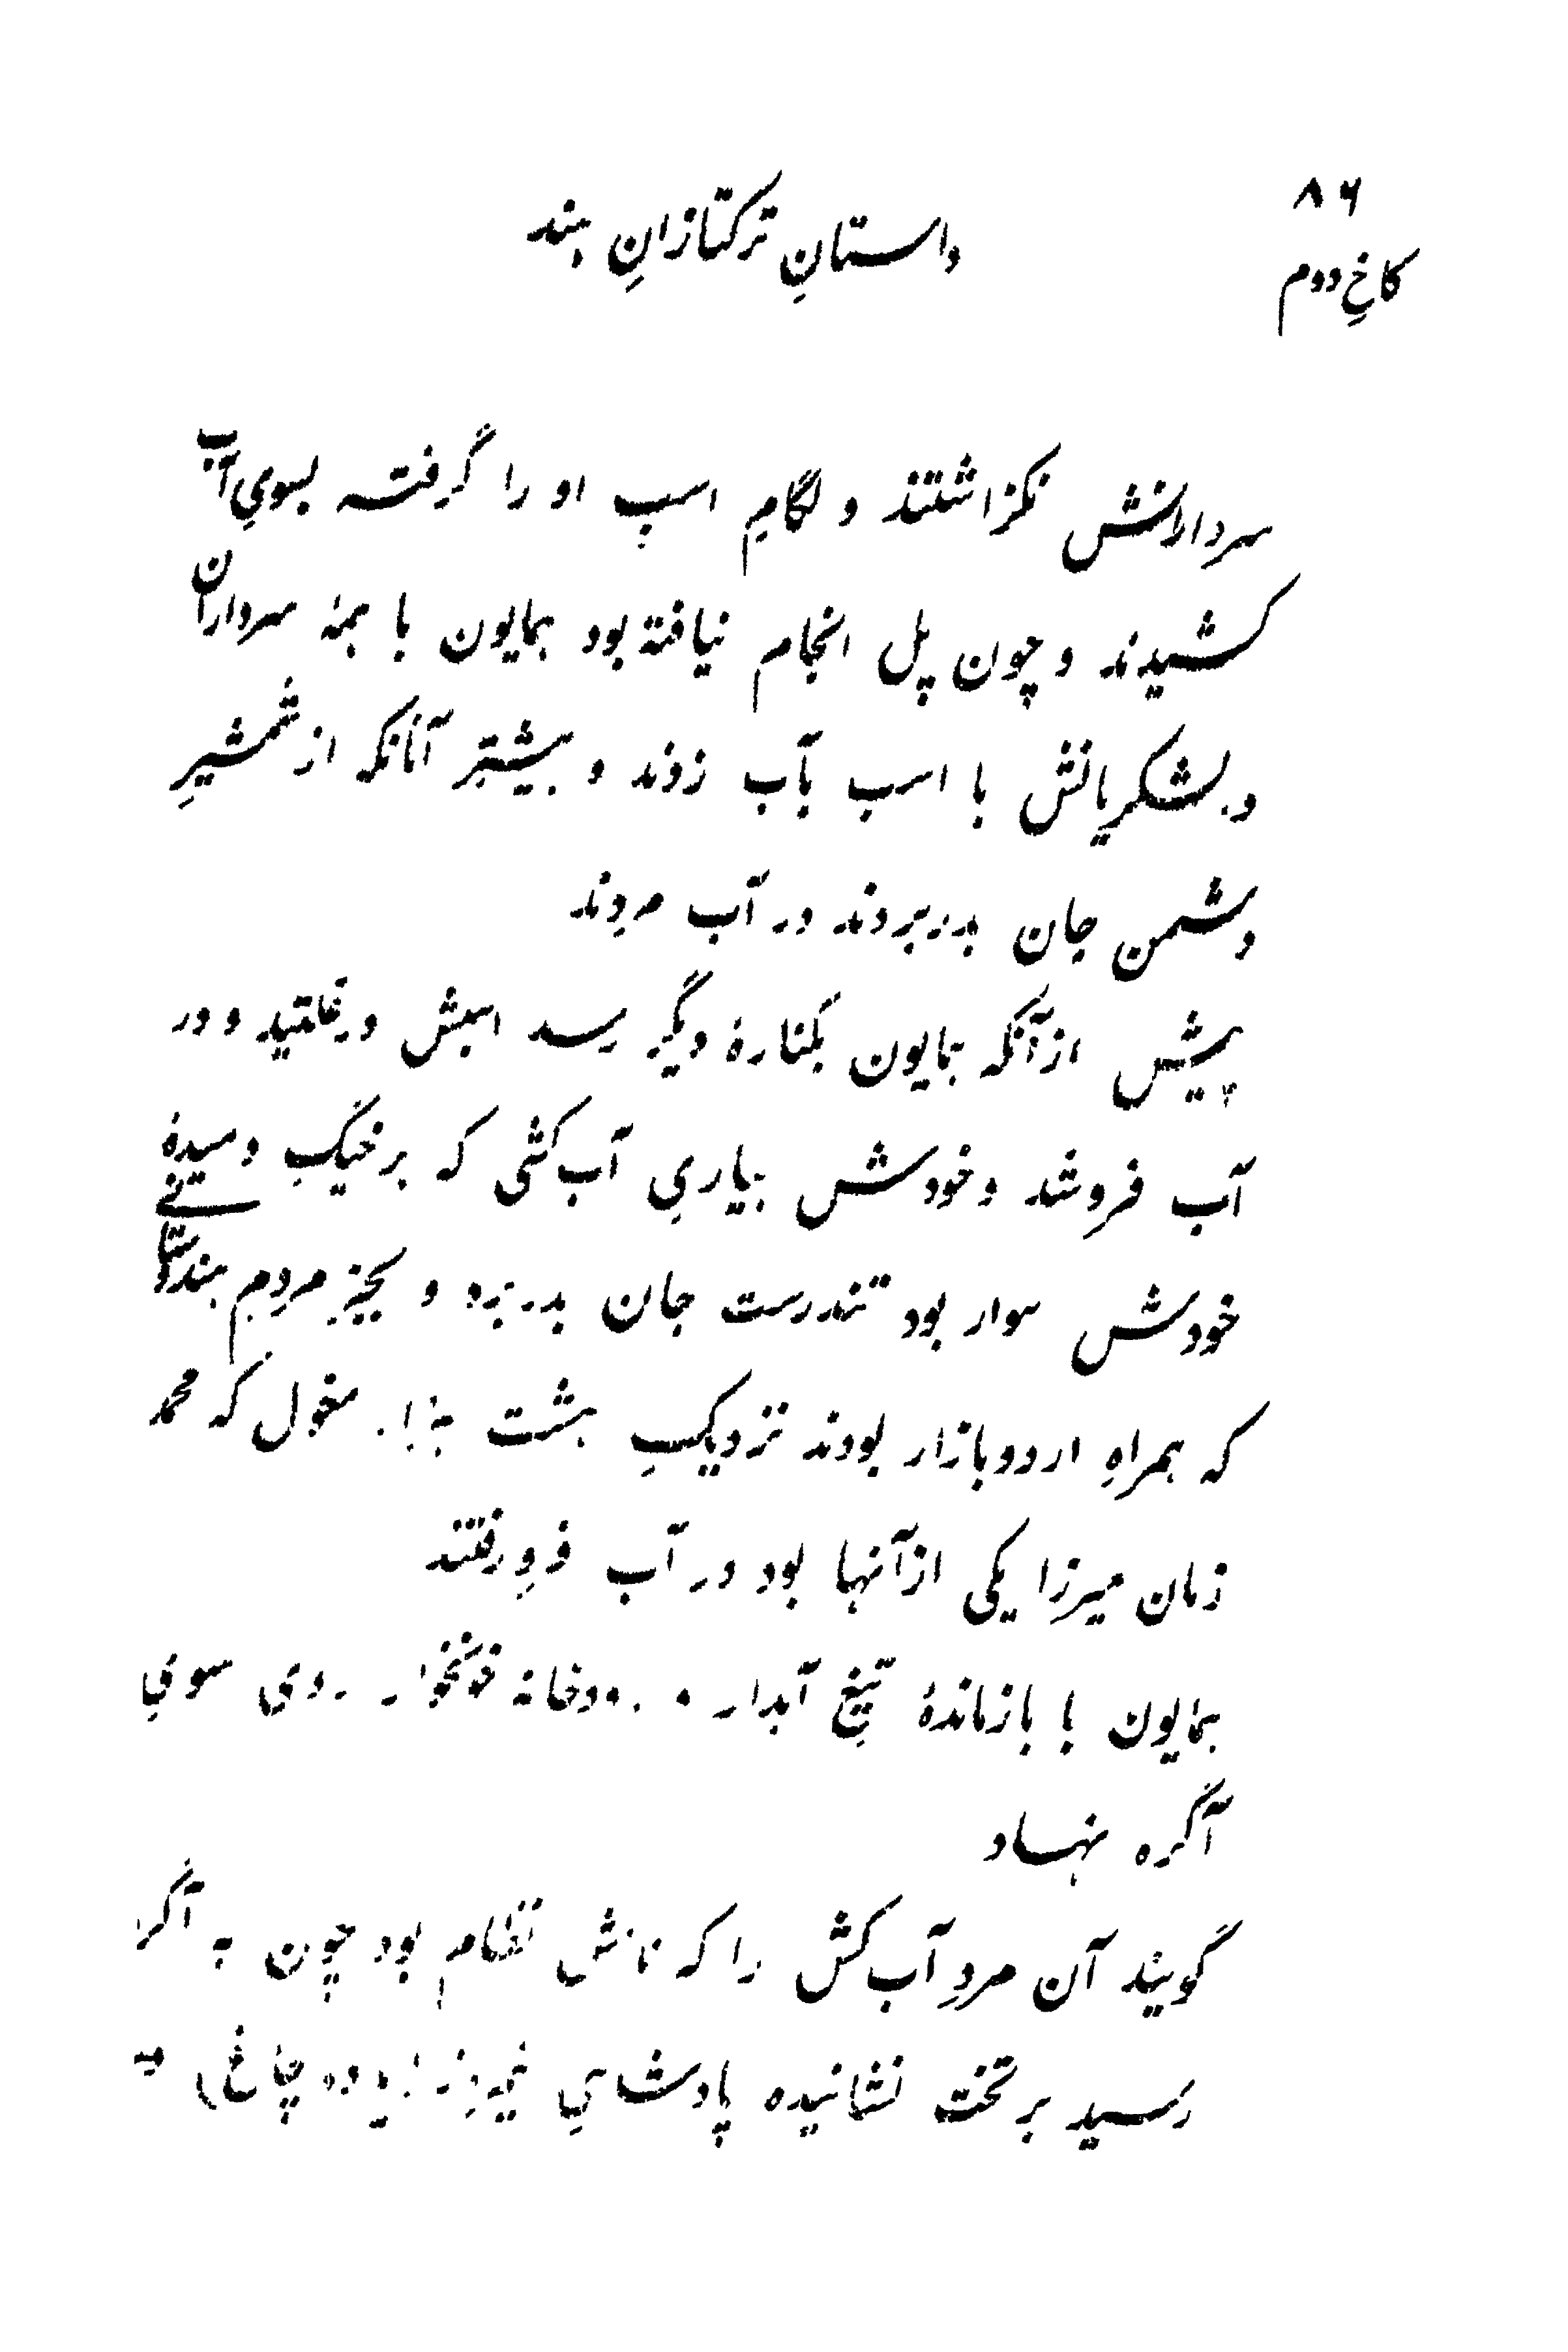 ۸۶
داستانِ ترکتازانِ هند
کاخِ دوم
سردارانش نگزاشتند و لگامِ اسپ او را گرفته بسویِ آب
کشیدند و چون پل انجام نیافته بود همایون با همهٔ سرداران
و لشکریانش با اسب بآب زدند و بیشتر آنانکه از شمشیرِ
دشمن جان بدر بردند در آب مردند
پیش ازآنکه همایون بکنارهٔ دیگر رسد اسبش در غلتید و در
آب فروشد و خودش بیاریِ آب کشی که بر خیگِ دمیدهٔ
خودش سوار بود تندرست جان بدر برد و بجز مردمِ هندوستانے
که همراهِ اردوبازار بودند نزدیکِ هشت هزار مغول که محمد
زمان میرزا یکی ازآنها بود در آب فرورفتند
همایون با بازماندهٔ تیغِ آبدار و رودخانهٔ خونخوار روی سویِ
آگره نهاد
گویند آن مردِ آب کش را که نامش نظام بود چون به آگره
رسید بر تخت نشانیده پادشاهیِ